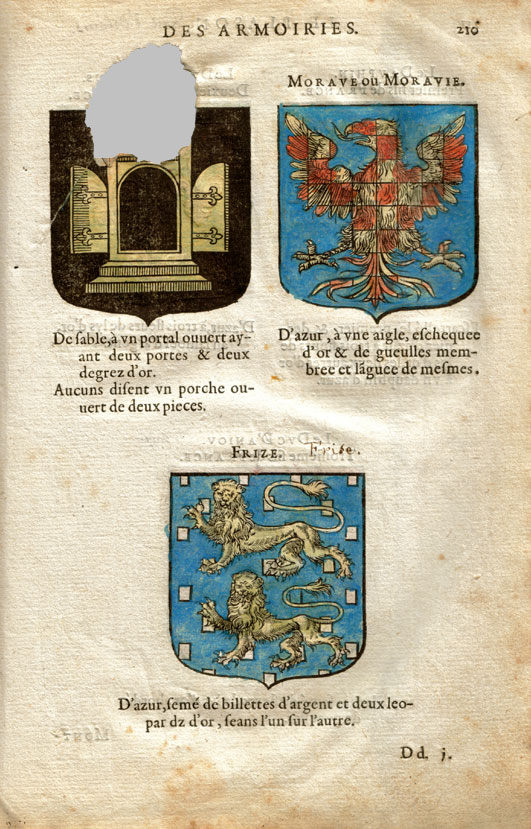 DES ARMOIRIES. 210
De sable, à vn portal ouuert ay-
ant deux portes & deux
degrez d'or.
Aucuns disent vn porche ou-
uert de deux pieces.
MORAVE OU MORAVIE.
D'azur, à vne aigle, eschequee
d'or & de gueulles mem-
bree et lãguee de mesmes.
FRIZE. Frise.
D'azur, semé de billettes d'argent et deux leo-
par dz d'or, seans l'un sur l'autre.
Dd. j.